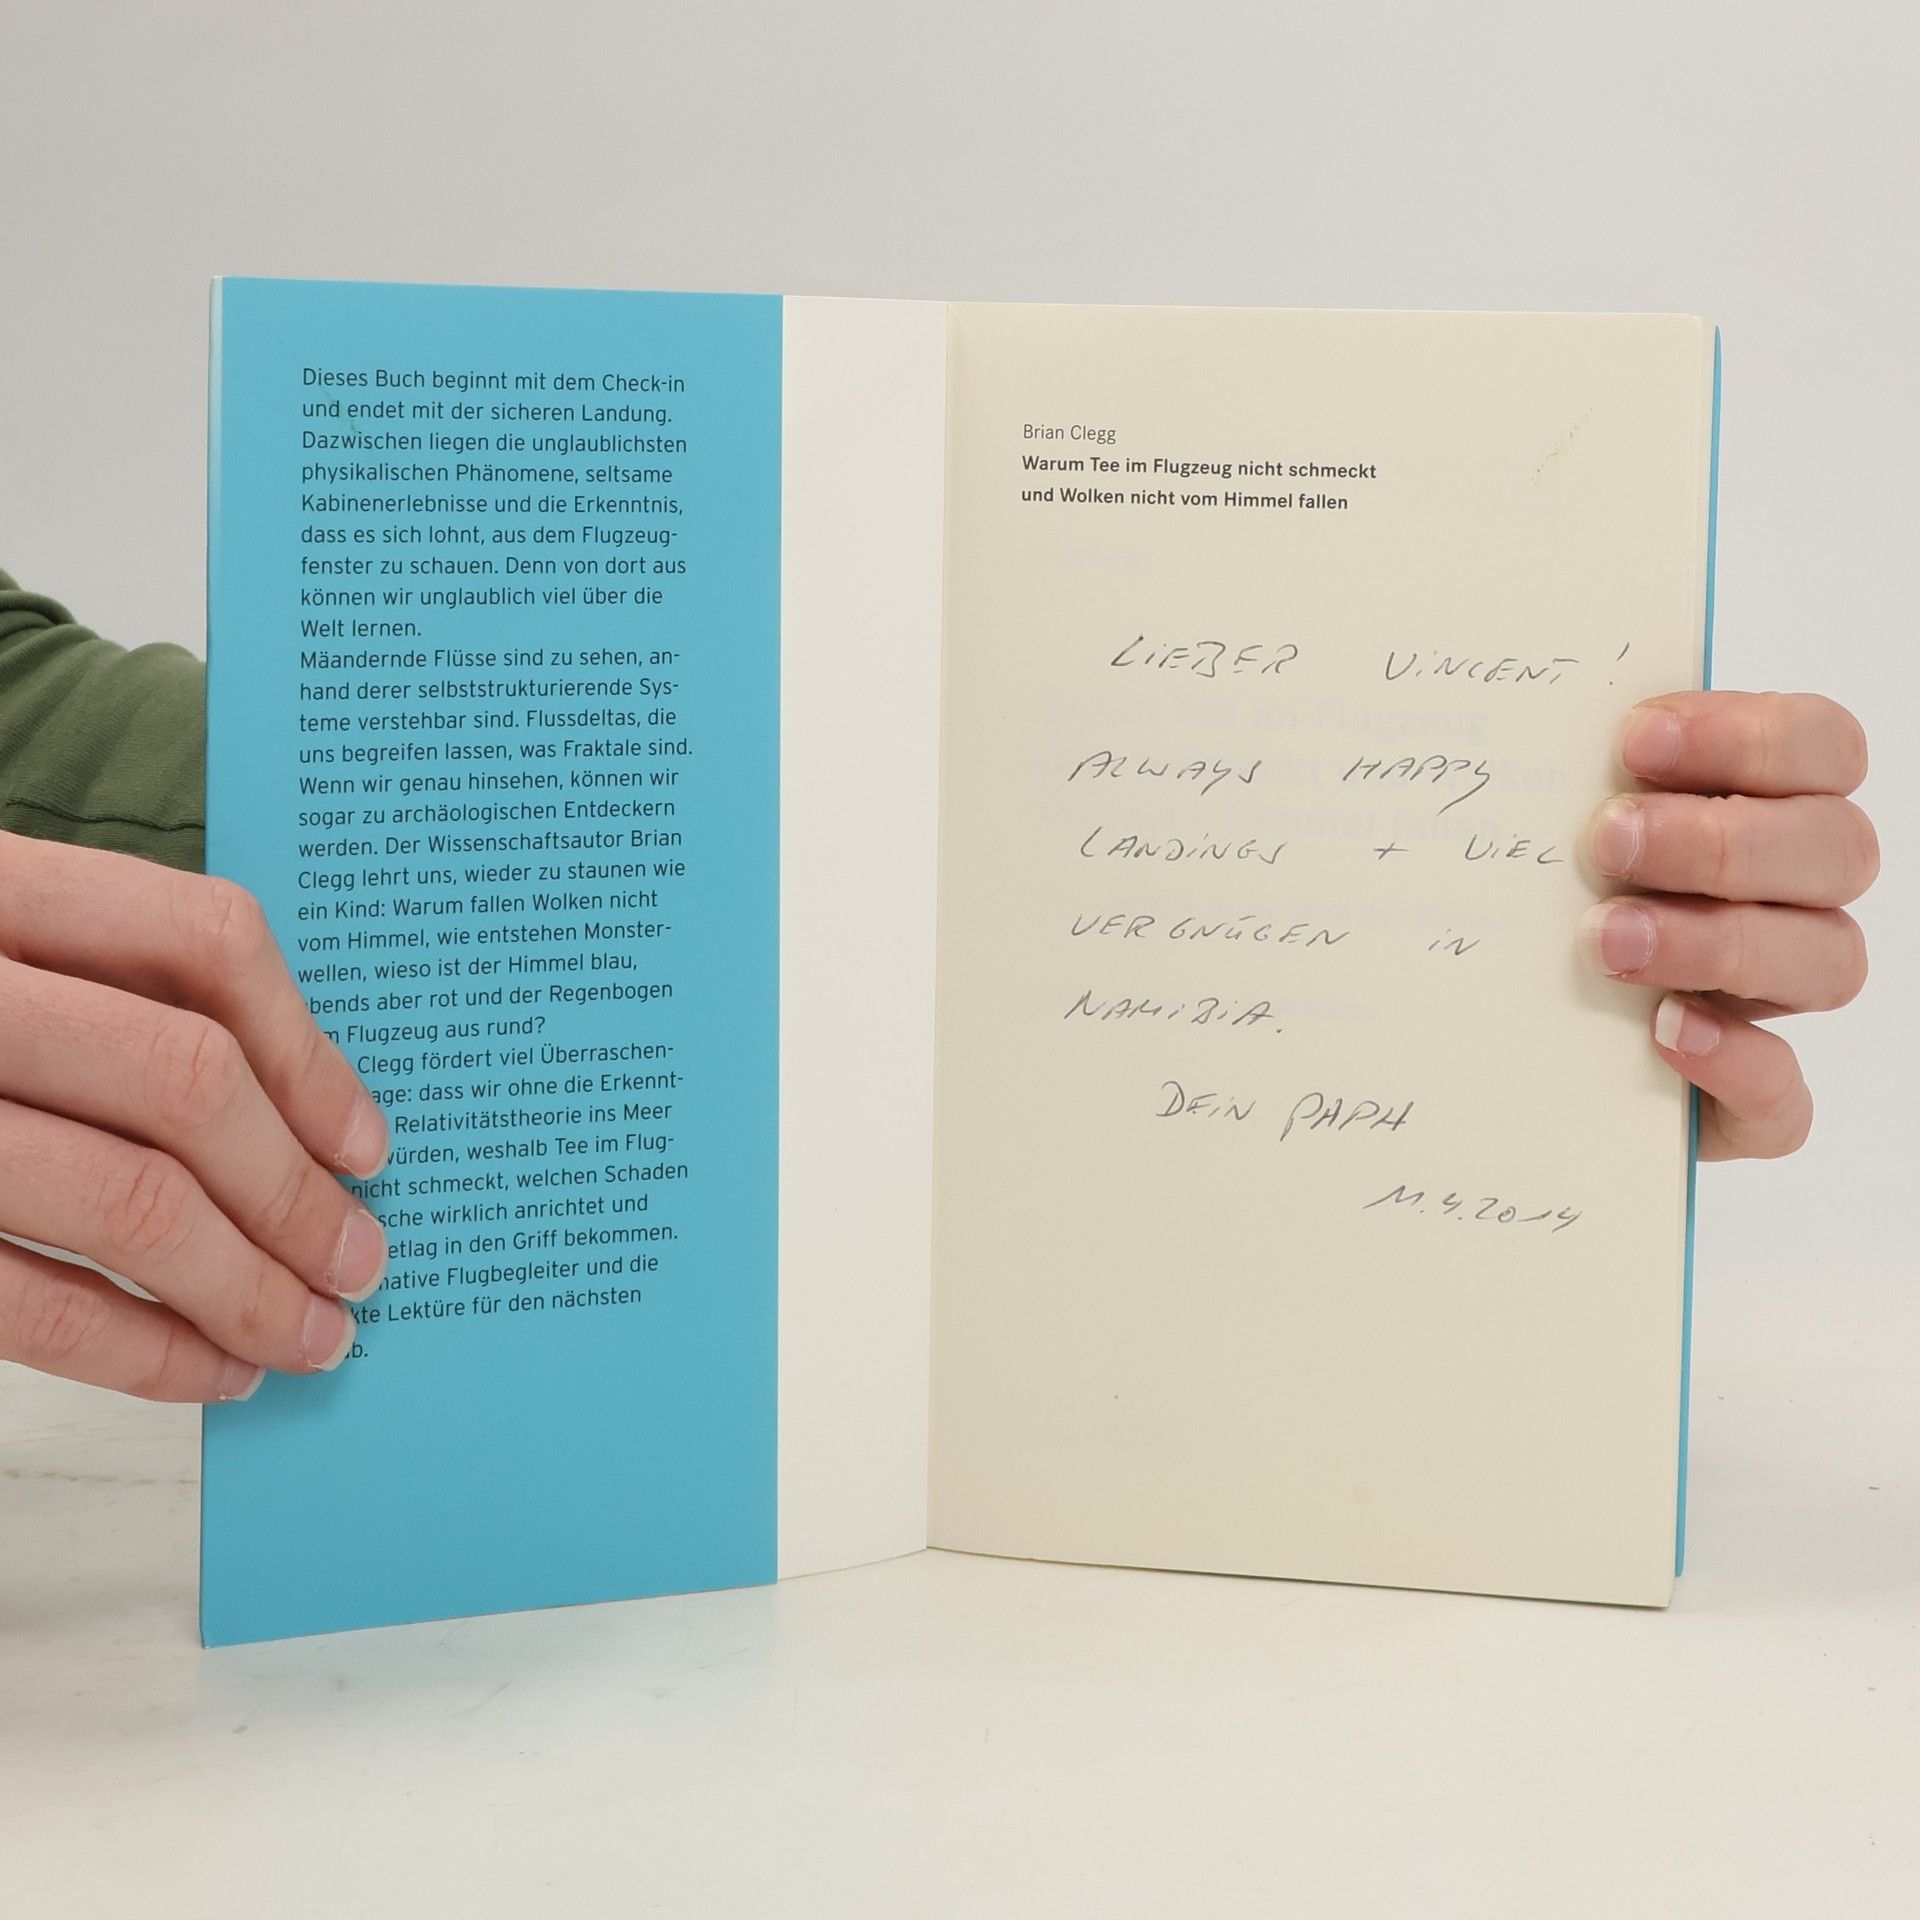 Dieses Buch beginnt mit dem Check-in
und endet mit der sicheren Landung.
Dazwischen liegen die unglaublichsten
physikalischen Phänomene, seltsame
Kabinenerlebnisse und die Erkenntnis,
dass es sich lohnt, aus dem Flugzeug-
fenster zu schauen. Denn von dort aus
können wir unglaublich viel über die
Welt lernen.
Mäandernde Flüsse sind zu sehen, an-
hand derer selbststrukturierende Sys-
teme verstehbar sind. Flussdeltas, die
uns begreifen lassen, was Fraktale sind.
Wenn wir genau hinsehen, können wir
sogar zu archäologischen Entdeckern
werden. Der Wissenschaftsautor Brian
Clegg lehrt uns, wieder zu staunen wie
ein Kind: Warum fallen Wolken nicht
vom Himmel, wie entstehen Monster-
wellen, wieso ist der Himmel blau,
bends aber rot und der Regenbogen
Flugzeug aus rund?
Clegg fördert viel Überraschen-
age: dass wir ohne die Erkennt-
Relativitätstheorie ins Meer
würden, weshalb Tee im Flug-
nicht schmeckt, welchen Schaden
sche wirklich anrichtet und
etlag in den Griff bekommen.
native Flugbegleiter und die
kte Lektüre für den nächsten
b.
Brian Clegg
Warum Tee im Flugzeug nicht schmeckt
und Wolken nicht vom Himmel fallen
LiEBER ViNCENT!
ALWAYS HAPPY
LANDiNGS + ViEL
VERGNÜGEN iN
NAMiBiA.
DEiN PAPA
11.4.2014